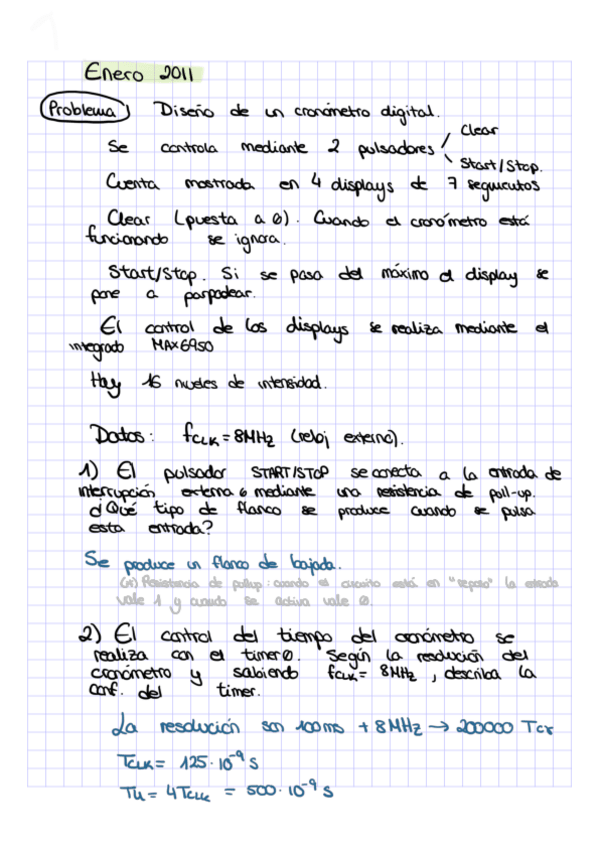 Enero 2011
Problema 1 Diseño de un cronómetro digital.
Clear
Se controla mediante 2 pulsadores
Start/Stop.
Cuenta mostrada en 4 displays de 7 segmentos
Clear (puesta a 0). Cuando el cronómetro está
funcionando se ignora.
Start/Stop. Si se pasa del máximo el display se
pone a parpadear.
El control de los displays se realiza mediante el
integrado MAX6950
Hay 16 niveles de intensidad.
Datos: fCLK = 8MHz (reloj externo).
1) El pulsador START/STOP se conecta a la entrada de
interrupción externa 6 mediante una resistencia de pull-up.
¿Qué tipo de flanco se produce cuando se pulsa
esta entrada?
Se produce un flanco de bajada.
(*) Resistencia de pullup: cuando el circuito está en "reposo" la entrada
vale 1 y cuando se activa vale 0.
2) El control del tiempo del cronómetro se
realiza con el timer 0. Según la resolución del
cronómetro y sabiendo fCLK = 8MHz, describa la
conf. del timer.
La resolución son 100ms + 8MHz → 200000 Tcy
TCLK = 125·10⁻⁹ s
TU = 4TCLK = 500·10⁻⁹ s